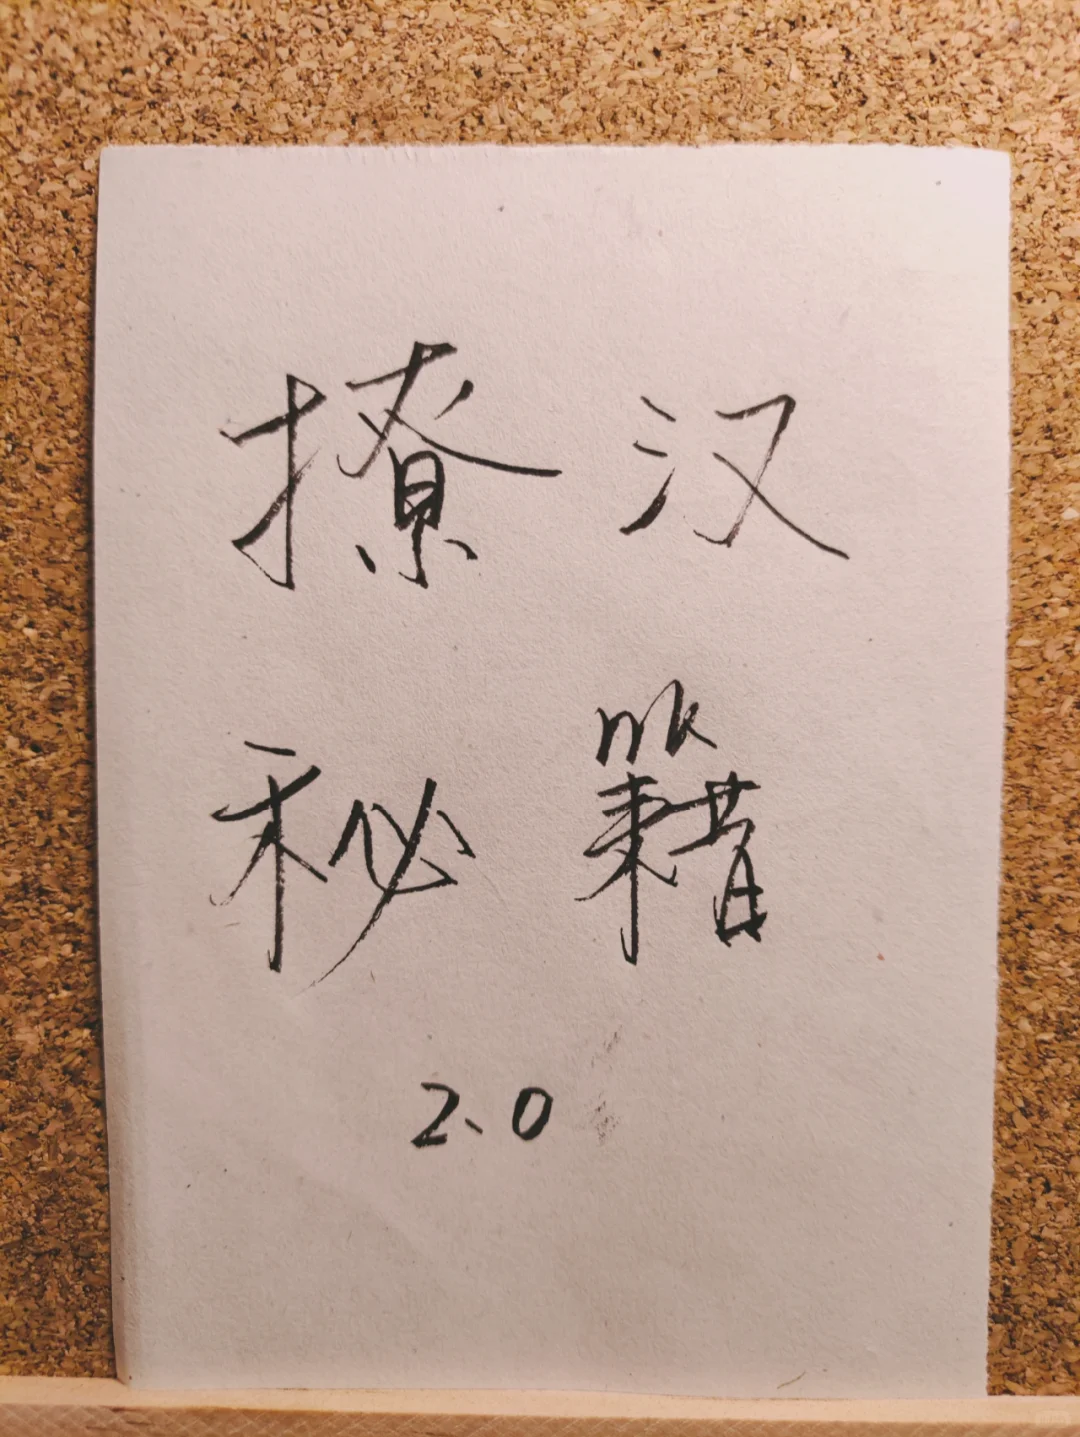 撩汉
秘籍
2.0